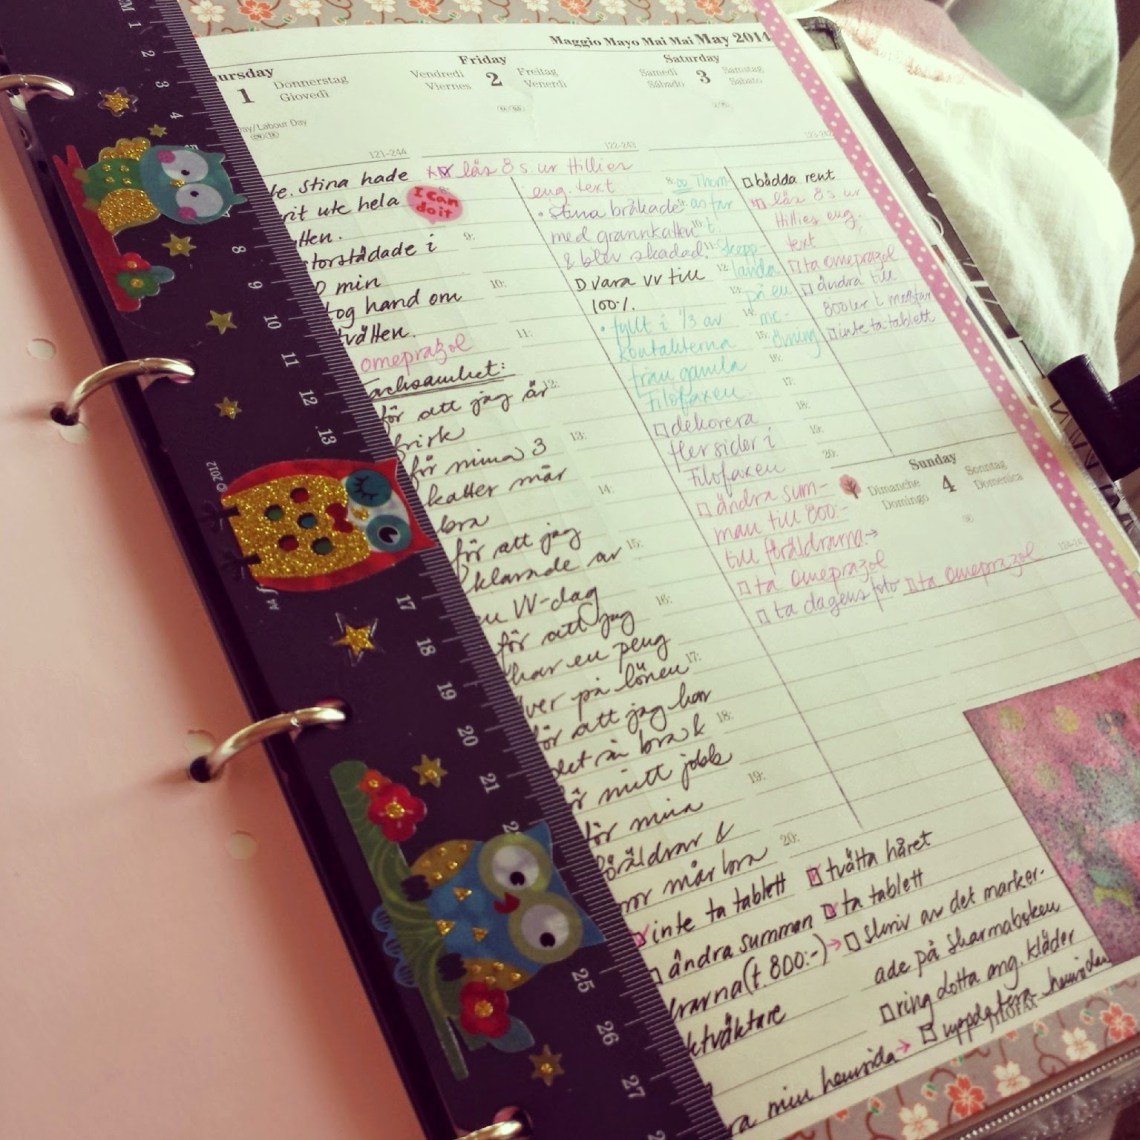 Maggio Mayo Mai Mai May 2014
ursday
1
Donnerstag
Giovedì
ay/Labour Day
121-244
Friday
Vendredi
Viernes
2
Freitag
Venerdì
122-243
Saturday
Samedi
Sábado
3
Samstag
Sabato
te. Stina hade
rit ute hela
tten.
torstädade i
0 min
tog hand om
tvätten.
omeprazol
acksamhet:
för att jag är
frisk
för mina 3
katter mår
bra
för att jag
klarade av
en VV-dag
för att jag
har en peng
ver på lönen
för att jag har
det så bra k
ör mitt jobb
för mina
föräldrar &
mår bra
inte ta tablett
ändra summan
rarna (t 800:-)
ktvättare
ra min hemsida
I Can
do it
läs 8 s ur Hillies
eng. text
• Stina bråkade
med grannkatten
& blev skadad.
vara VV till
100%.
• fyllt i 1/3 av
kontakterna
från gamla
Filofaxen
dekorera
fler sidor i
Filofaxen
ändra sum-
man till 800:-
till föräldrarna→
ta omeprazol
ta dagens foto
tvätta håret
ta tablett
skriv av det marker-
ade på Sharmaboken
ring dotta ang. kläder
uppdatera hemsidan
8:
9:
10:
11:
12:
13:
14:
15:
16:
17:
18:
19:
20:
landa
på en
bädda rent
läs 8 s ur
Hillies eng.
text
ta omeprazol
ändra till
inte ta tablett
Sunday
Dimanche
Domingo
4
Sonntag
Domenica
ta omeprazol
1
2
3
4
5
7
8
9
10
11
12
13
© 2012
17
18
19
20
21
25
26
27